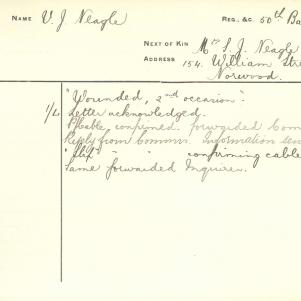 NAME V. J. Neagle REG. &C. 50th Ba
NEXT OF KIN Mrs S. J. Neagle
ADDRESS 154 William Stre
Norwood.
"Wounded, 2nd occasion".
1/4 Letter acknowledged.
confirmed. forwarded Com
Reply from Comms. Information sen
" " " confirming cable
Same forwarded Inquirer.